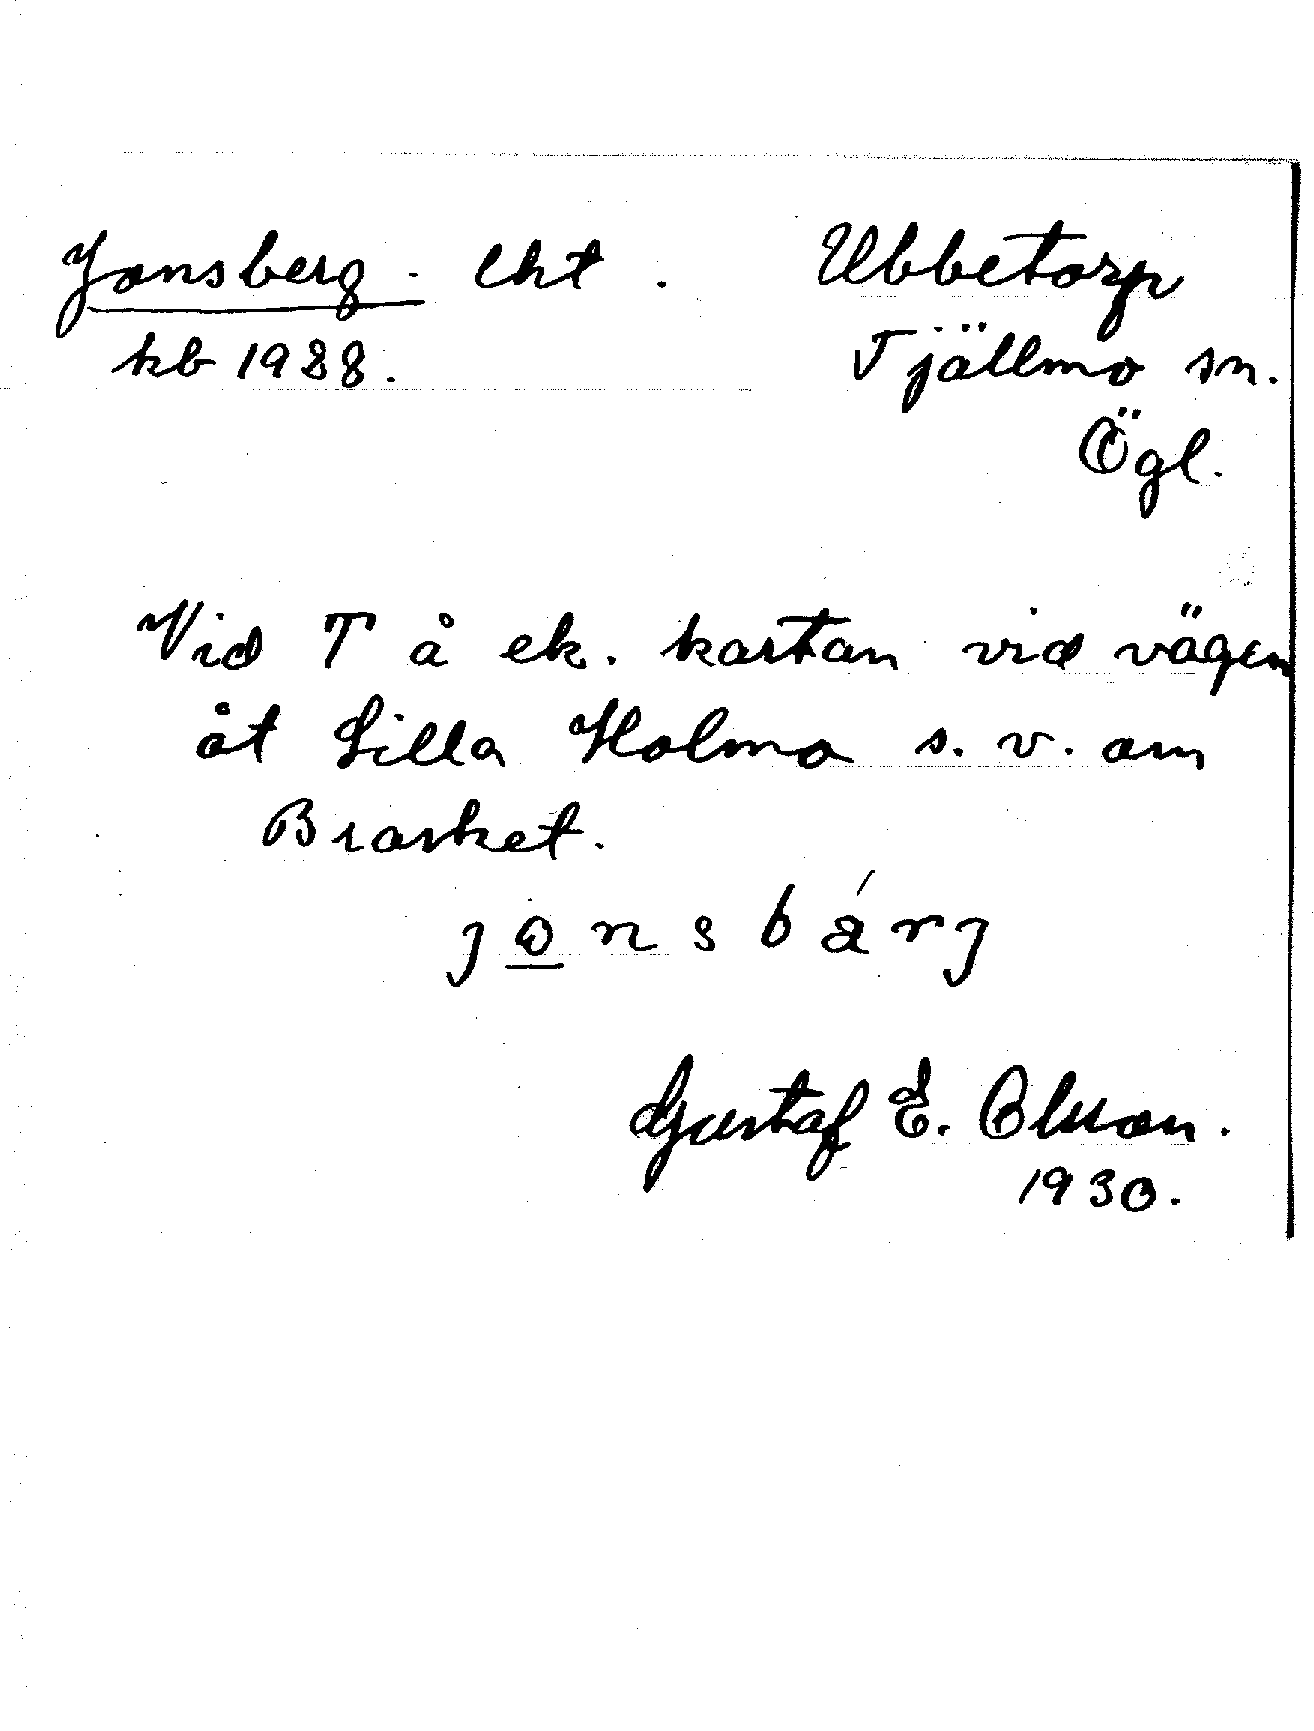 Jonsberg - lht. Ubbetorp
kb 1928. Tjällmo sn.
Ögl.
Vid T å ek. kartan vid vägen
åt Lilla Holmo s. v. om
Brasket.
jo̲nsbärj
Gustaf E. Olsson.
1930.